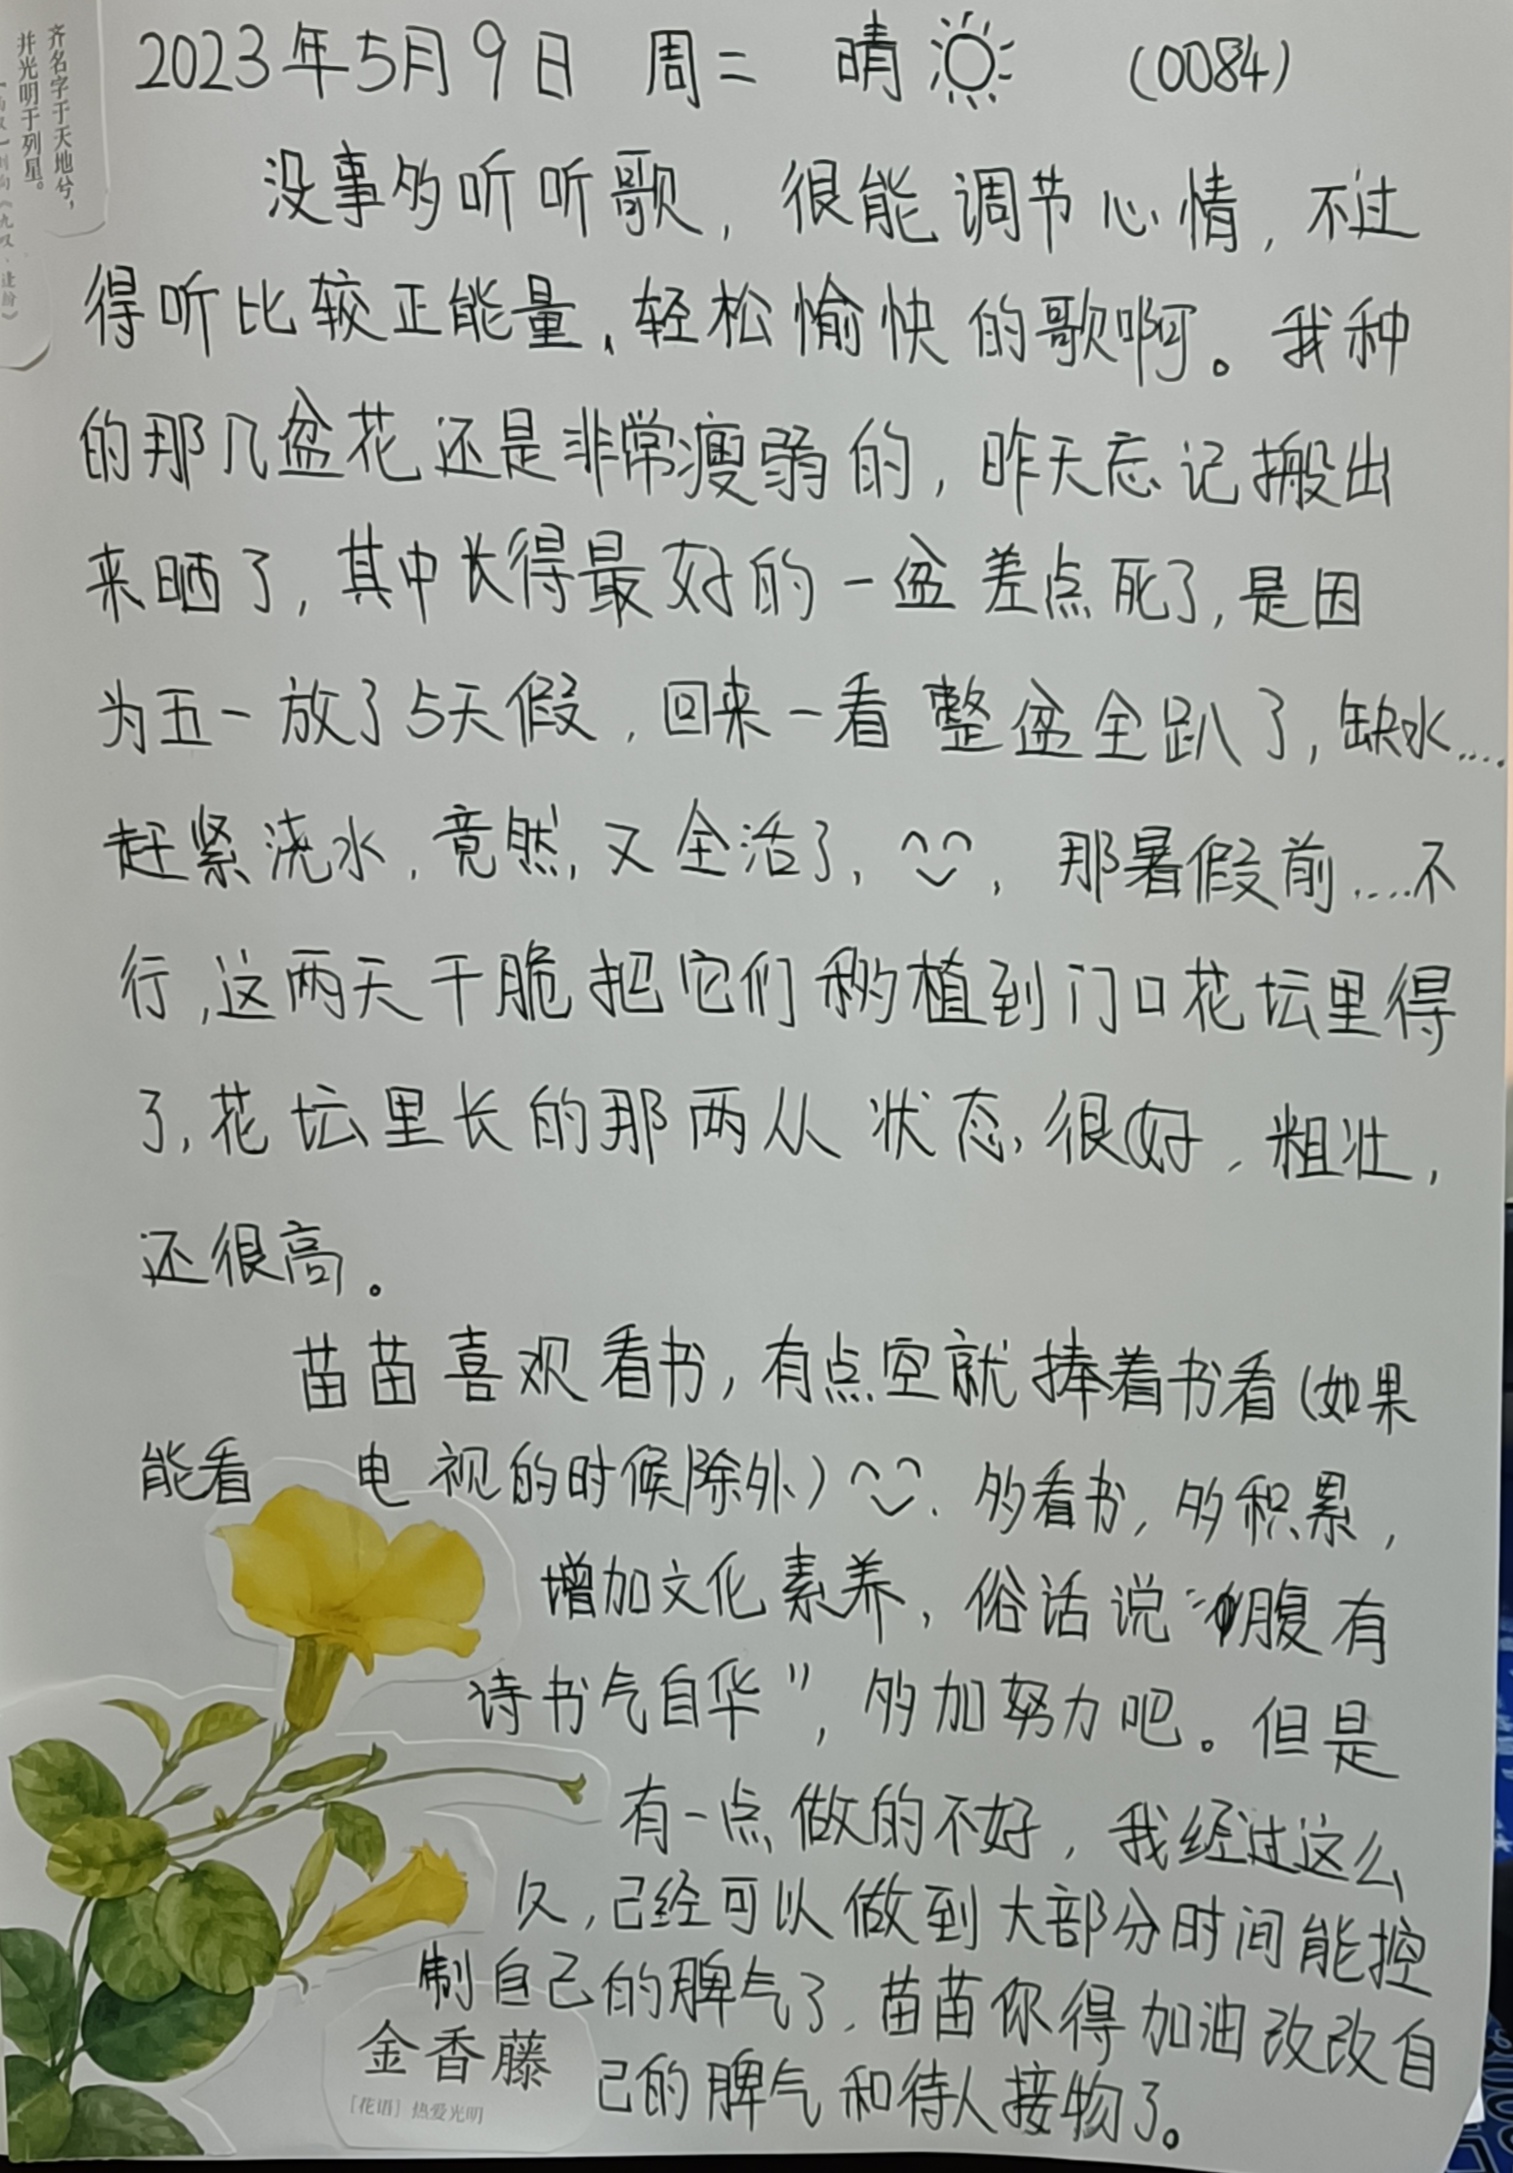 齐名字于天地兮,
并光明于列星。
2023年5月9日 周二 晴 (0084)
没事多听听歌,很能调节心情,不过
得听比较正能量、轻松愉快的歌啊。我种
的那几盆花还是非常瘦弱的,昨天忘记搬出
来晒了,其中长得最好的一盆差点死了,是因
为五一放了5天假,回来一看整盆全趴了,缺水....
赶紧浇水,竟然,又全活了,,那暑假前....不
行,这两天干脆把它们移植到门口花坛里得
了,花坛里长的那两从状态,很好,粗壮,
还很高。
苗苗喜观看书,有点空就捧着书看(如果
能看电视的时候除外).多看书,多积累,
增加文化素养,俗话说“腹有
诗书气自华”,多加努力吧。但是
有一点做的不好,我经过这么
久,己经可以做到大部分时间能控
制自己的脾气了,苗苗你得加油改改自
己的脾气和待人接物了。
金香藤
[花语] 热爱光明